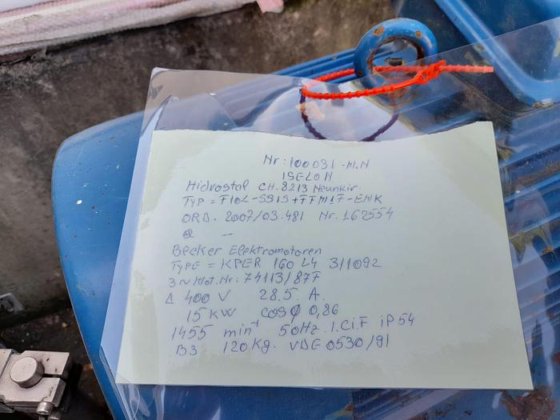 Nr: 100031 -M.N
ISELON
Hidrostal CH. 8213 Neunkir.
TYP = F10L-SS1S+FFM1F-EHK
ORD. 2007/03.481 Nr. 162554
Q —
Becker Elektromotoren
TYPE = KPER 160 L4 3/1092
3~Mot. Nr: 74113/87F
Δ 400 V 28.5 A.
15 KW cos Ø 0,86
1455 min⁻¹ 50Hz. I.Cl F iP 54
B3 120 Kg. VDE 0530/91